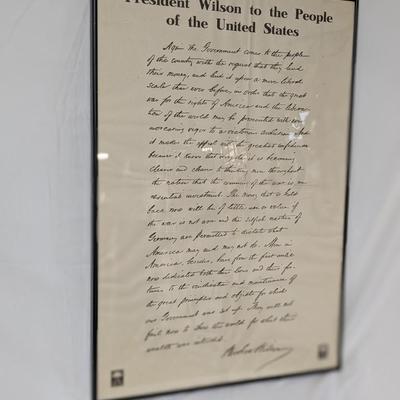 President Wilson to the People
of the United States
Again the Government comes to the people
of the country with the request that they lend
their money, and lend it upon a more liberal
scale than ever before, in order that the great
war for the rights of America and the libera-
tion of the world may be prosecuted with ever
increasing vigor to a victorious conclusion. And
it makes the appeal with the greatest confidence
because it knows that every day it is becoming
clearer and clearer to thinking men throughout
the nation that the winning of the war is an
essential investment. The money that is held
back now will be of little use or value if
the war is not won and the selfish masters of
Germany are permitted to dictate what
America may and may not do. Men in
America, besides, have from the first until
now dedicated both their lives and their for-
tunes to the vindication and maintenance of
the great principles and objects for which
our Government was set up. They will not
fail now to show the world for what their
wealth was intended.
Woodrow Wilson